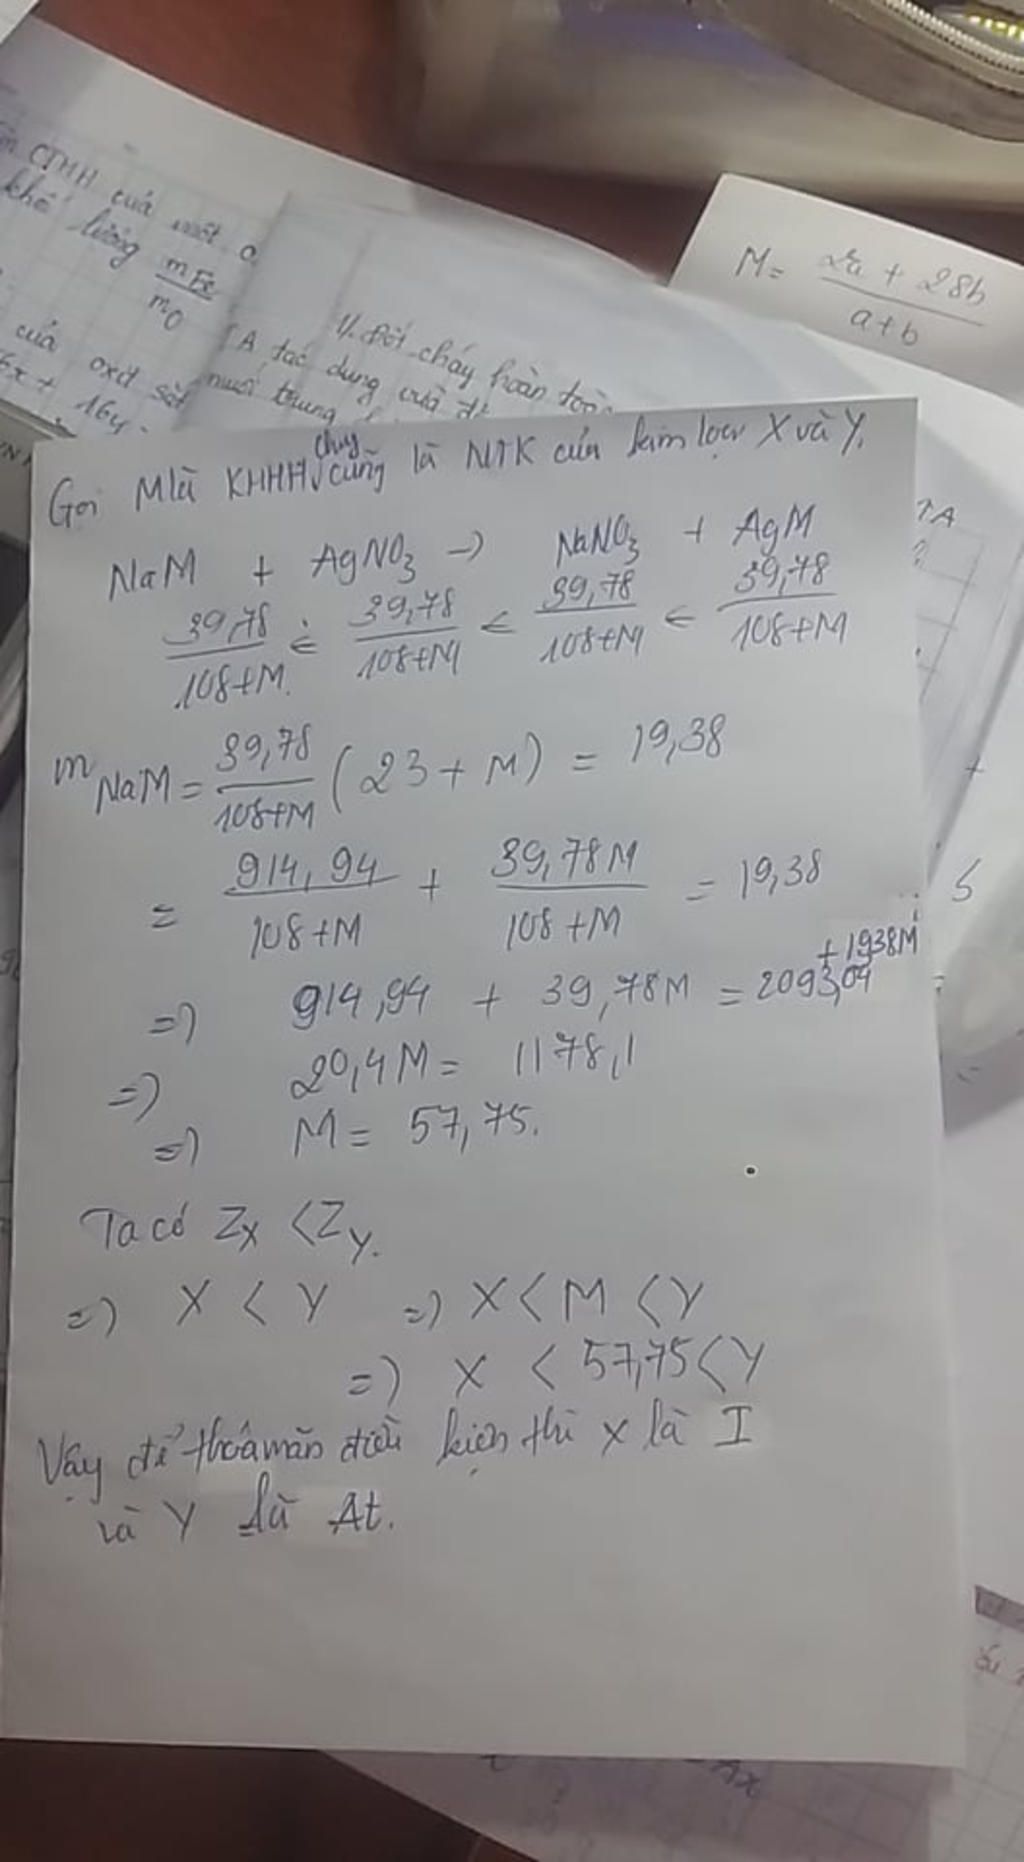 CTHH của một o
khối lượng mFe/mO
của oxit sắt
16y
1/. Đốt cháy hoàn toàn
A tác dụng với
M = (2a + 28b)/(a+b)
Gọi M là KHHH chung cũng là NTK của kim loại X và Y.
NaM + AgNO3 -> NaNO3 + AgM
39,78/(108+M) ← 39,78/(108+M) ← 39,78/(108+M) ← 39,78/(108+M)
mNaM = 39,78/(108+M) (23 + M) = 19,38
= 914,94/(108+M) + 39,78M/(108+M) = 19,38
=> 914,94 + 39,78M = 2093,04 + 1938M
=> 20,4M = 1178,1
=> M = 57,75.
Ta có ZX < ZY.
=> X < Y => X < M < Y
=> X < 57,75 < Y
Vậy để thoả mãn điều kiện thì X là I
và Y là At.